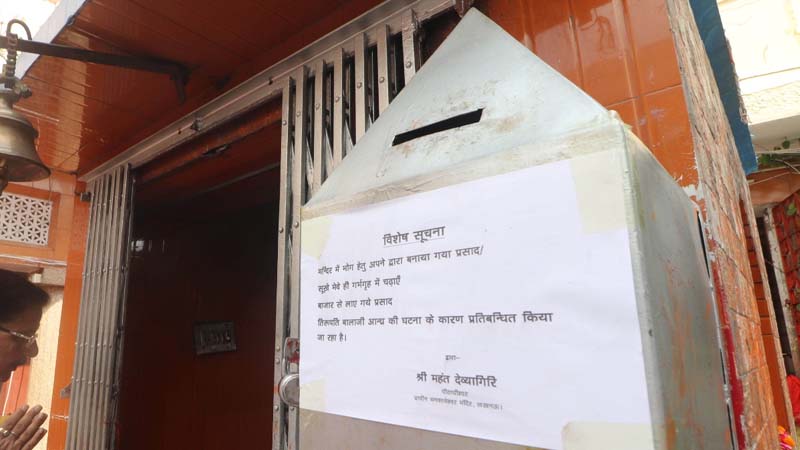 विशेष सूचना
मन्दिर में भोग हेतु अपने द्वारा बनाया गया प्रसाद/
सूखे मेवे ही गर्भगृह में चढ़ाएँ
बाजार से लाए गये प्रसाद
तिरूपति बालाजी आन्ध्र की घटना के कारण प्रतिबन्धित किया
जा रहा है।
द्वारा:-
श्री महंत देव्यागिरि
पीठाधीश्वर
प्राचीन मनकामेश्वर मंदिर, लखनऊ।